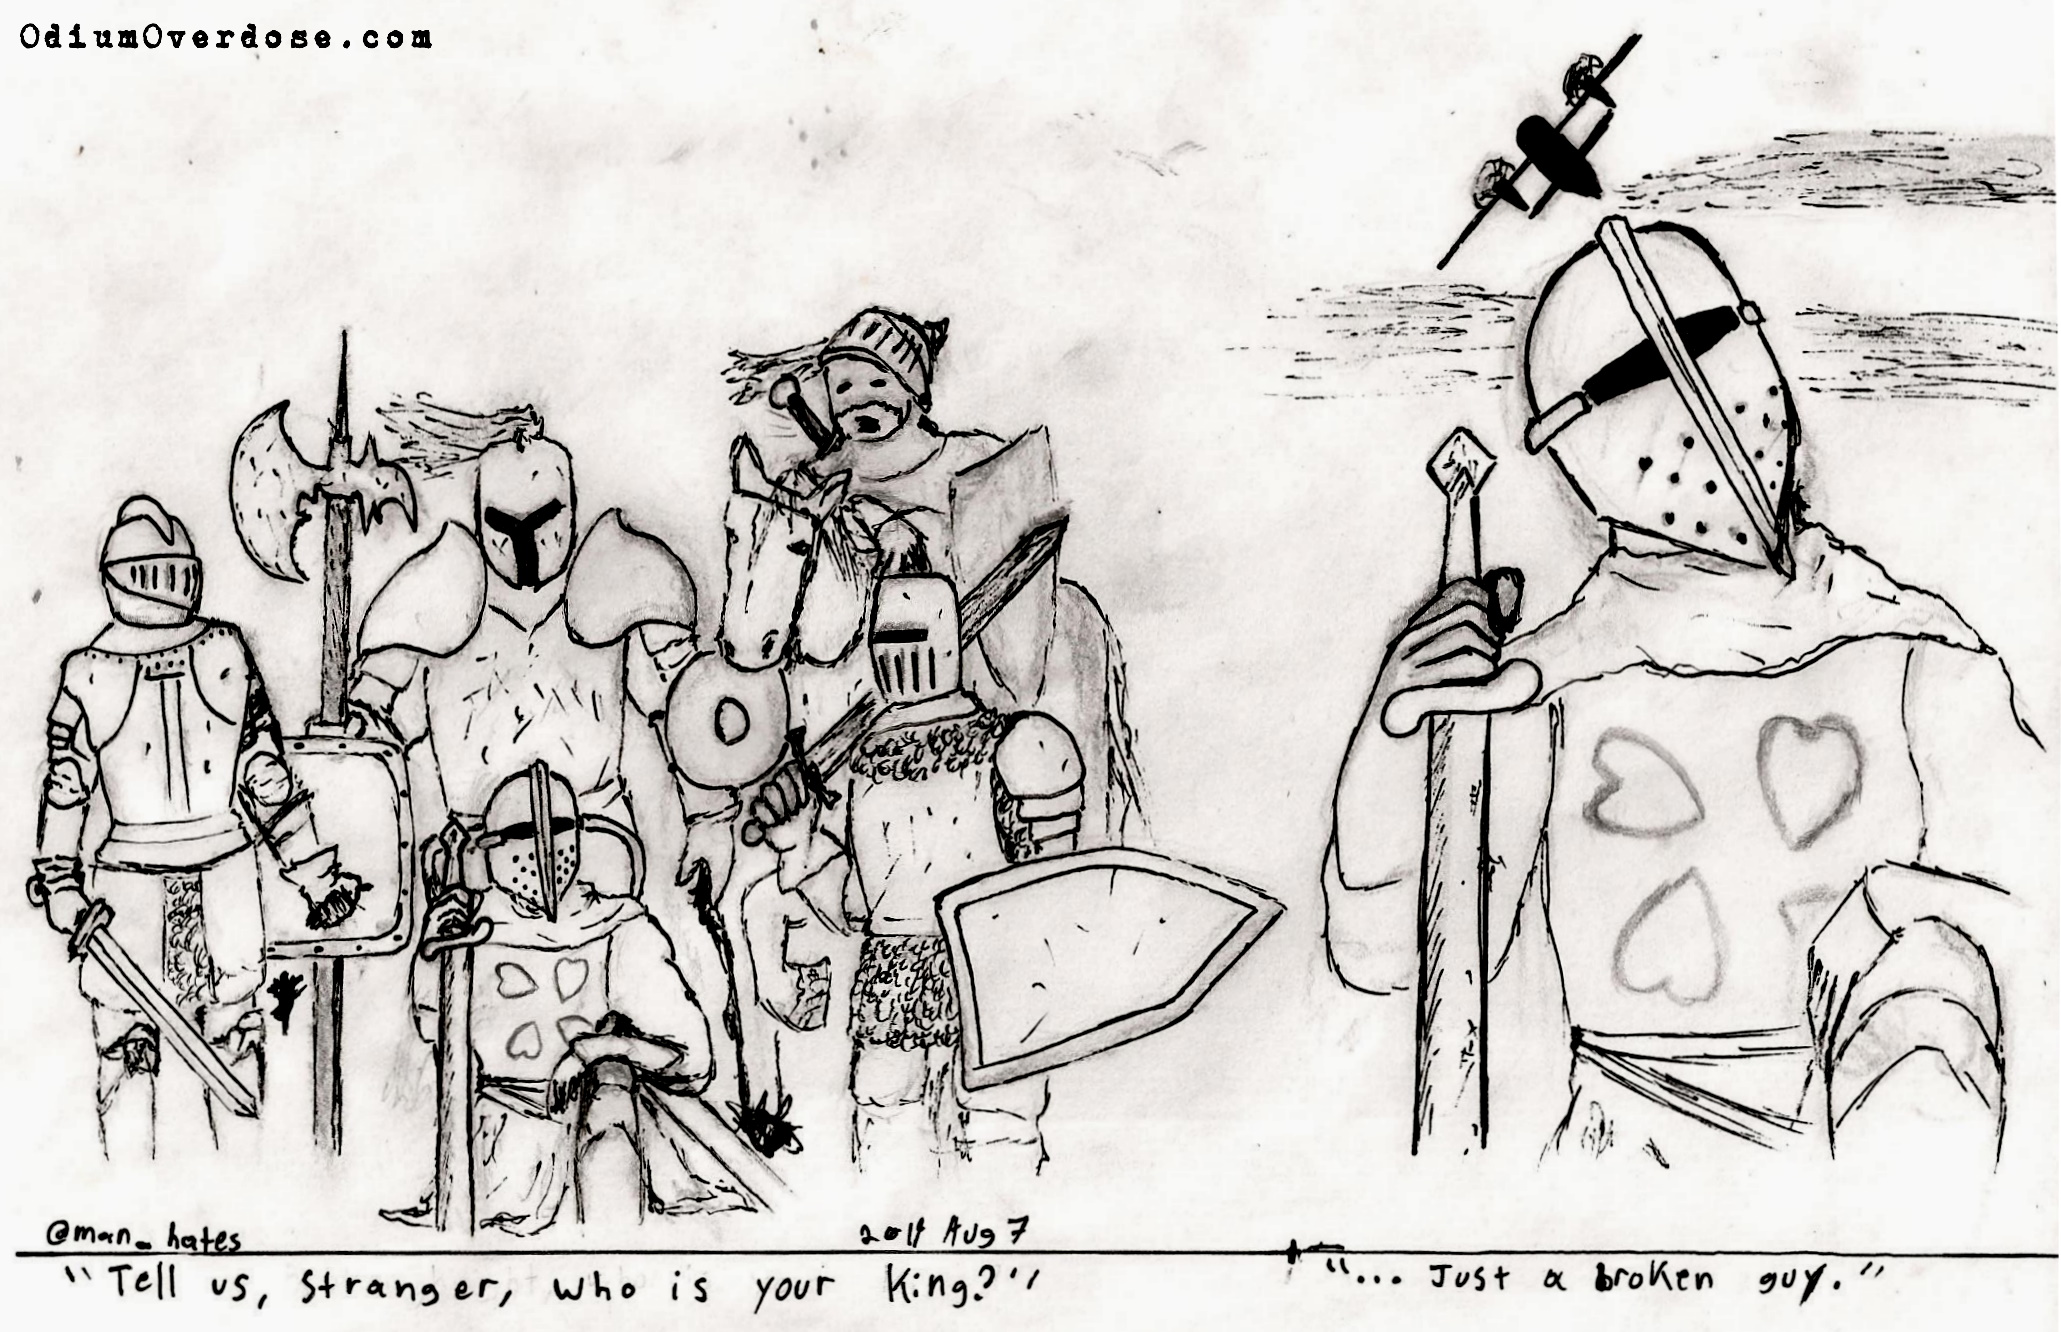 OdiumOverdose.com
@man_hates
2014 Aug 7
"Tell us, Stranger, who is your King?"
"... Just a broken guy."